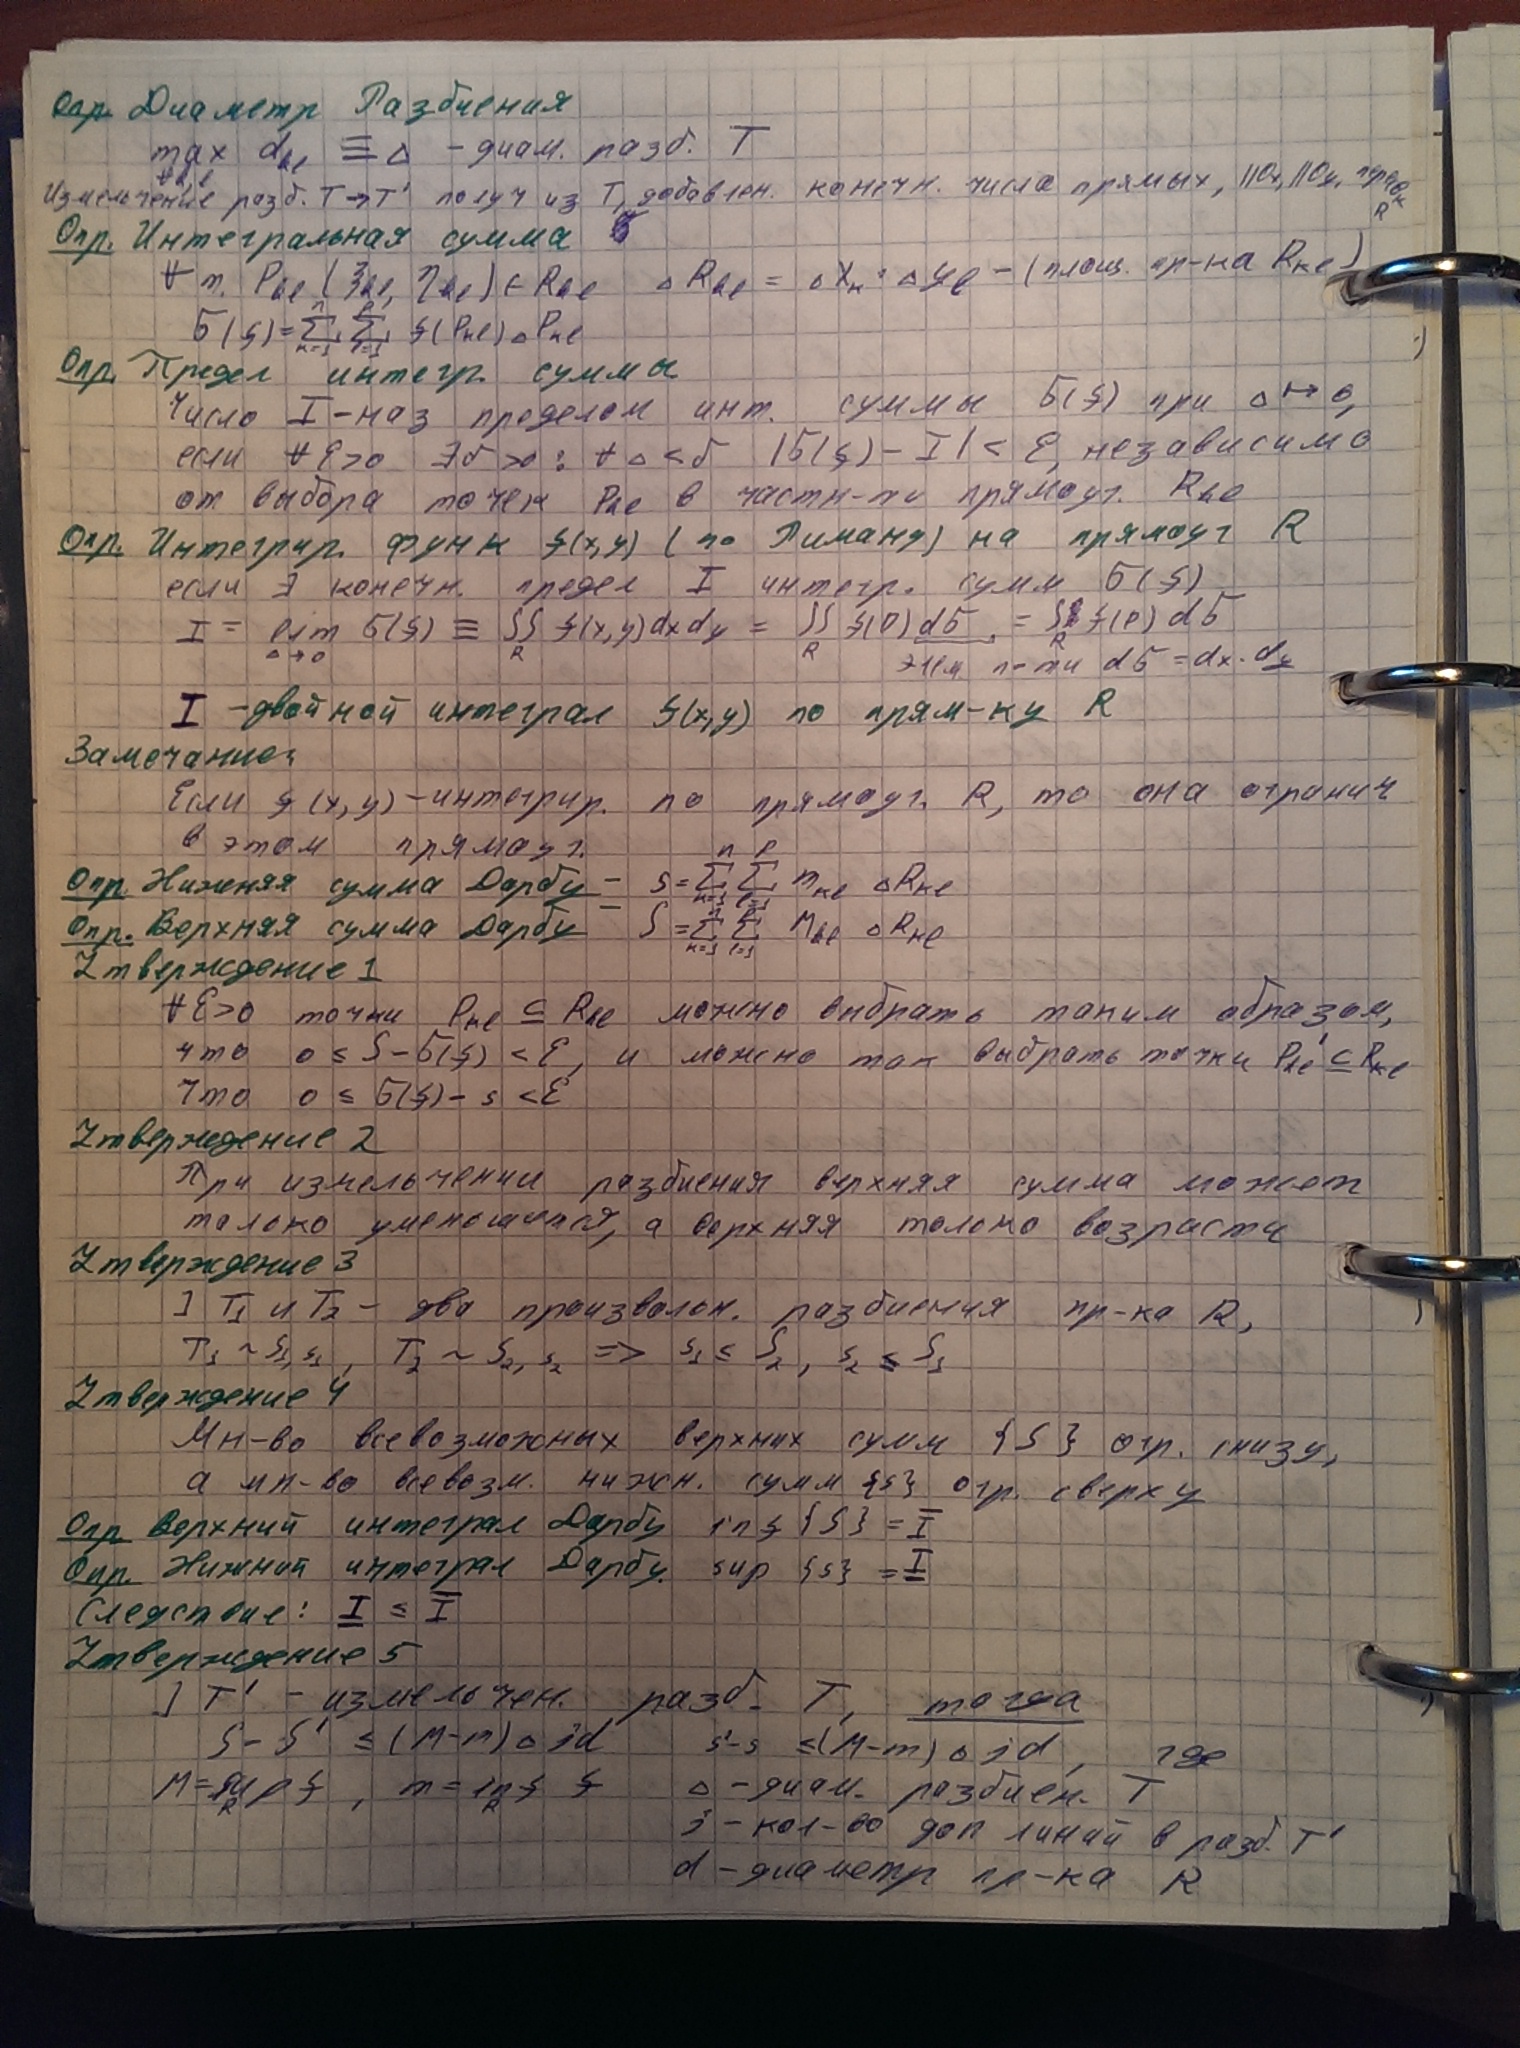 Опр. Диаметр Разбиения
max d_kl ≡ Δ - диам. разб. T
∀k,l
Измельчение разб. T→T' получ из T, добавлен. конечн. числа прямых, ||Ox, ||Oy,
R
Опр. Интегральная сумма
∀ т. P_kl (ξ_kl, η_kl) ∈ R_kl ΔR_kl = Δx_k · Δy_l - (площ. пр-ка R_kl)
σ(f) = Σ_{k=1}^{n} Σ_{l=1}^{p} f(P_kl) ΔP_kl
Опр. Предел интегр. суммы
Число I - наз пределом инт. суммы σ(f) при Δ↦0,
если ∀ε>0 ∃δ>0 : ∀Δ<δ |σ(f) - I| < ε, независимо
от выбора точек P_kl в частн-ти прямоуг. R_kl
Опр. Интегрир. функ f(x,y) (по Риману) на прямоуг R
если ∃ конечн. предел I интегр. сумм σ(f)
I = lim_{Δ→0} σ(f) ≡ ∬_R f(x,y)dxdy = ∬_R f(P)dσ = ∫_R f(P) dσ
элем пл-ти dσ = dx·dy
I - двойной интеграл f(x,y) по прям-ку R
Замечание:
Если f(x,y) - интегрир. по прямоуг. R, то она огранич
в этом прямоуг.
Опр. Нижняя сумма Дарбу - s = Σ_{k=1}^{n} Σ_{l=1}^{p} m_kl ΔR_kl
Опр. Верхняя сумма Дарбу - S = Σ_{k=1}^{n} Σ_{l=1}^{p} M_kl ΔR_kl
Утверждение 1
∀ε>0 точки P_kl ⊆ R_kl можно выбрать таким образом,
что 0 ≤ S - σ(f) < ε, и можно так выбрать точки P'_kl ⊆ R_kl
что 0 ≤ σ(f) - s < ε
Утверждение 2
При измельчении разбиения верхняя сумма может
только уменьшится, а верхняя только возрасти
Утверждение 3
] T₁ и T₂ - два произвольн. разбиения пр-ка R,
T₁ ~ S₁, s₁, T₂ ~ S₂, s₂ => s₁ ≤ S₂, s₂ ≤ S₁
Утверждение 4
Мн-во всевозможных верхних сумм {S} огр. снизу,
а мн-во всевозм. нижн. сумм {s} огр. сверху
Опр Верхний интеграл Дарбу inf {S} = I̅
Опр. Нижний интеграл Дарбу. sup {s} = I̲
Следствие: I̲ ≤ I̅
Утверждение 5
] T' - измельчен. разб. T, тогда
S - S' ≤ (M-m) Δjd s'-s ≤ (M-m) Δjd, где
M = sup_R f, m = inf_R f Δ - диам. разбиен. T
j - кол-во доп линий в разб. T'
d - диаметр пр-ка R